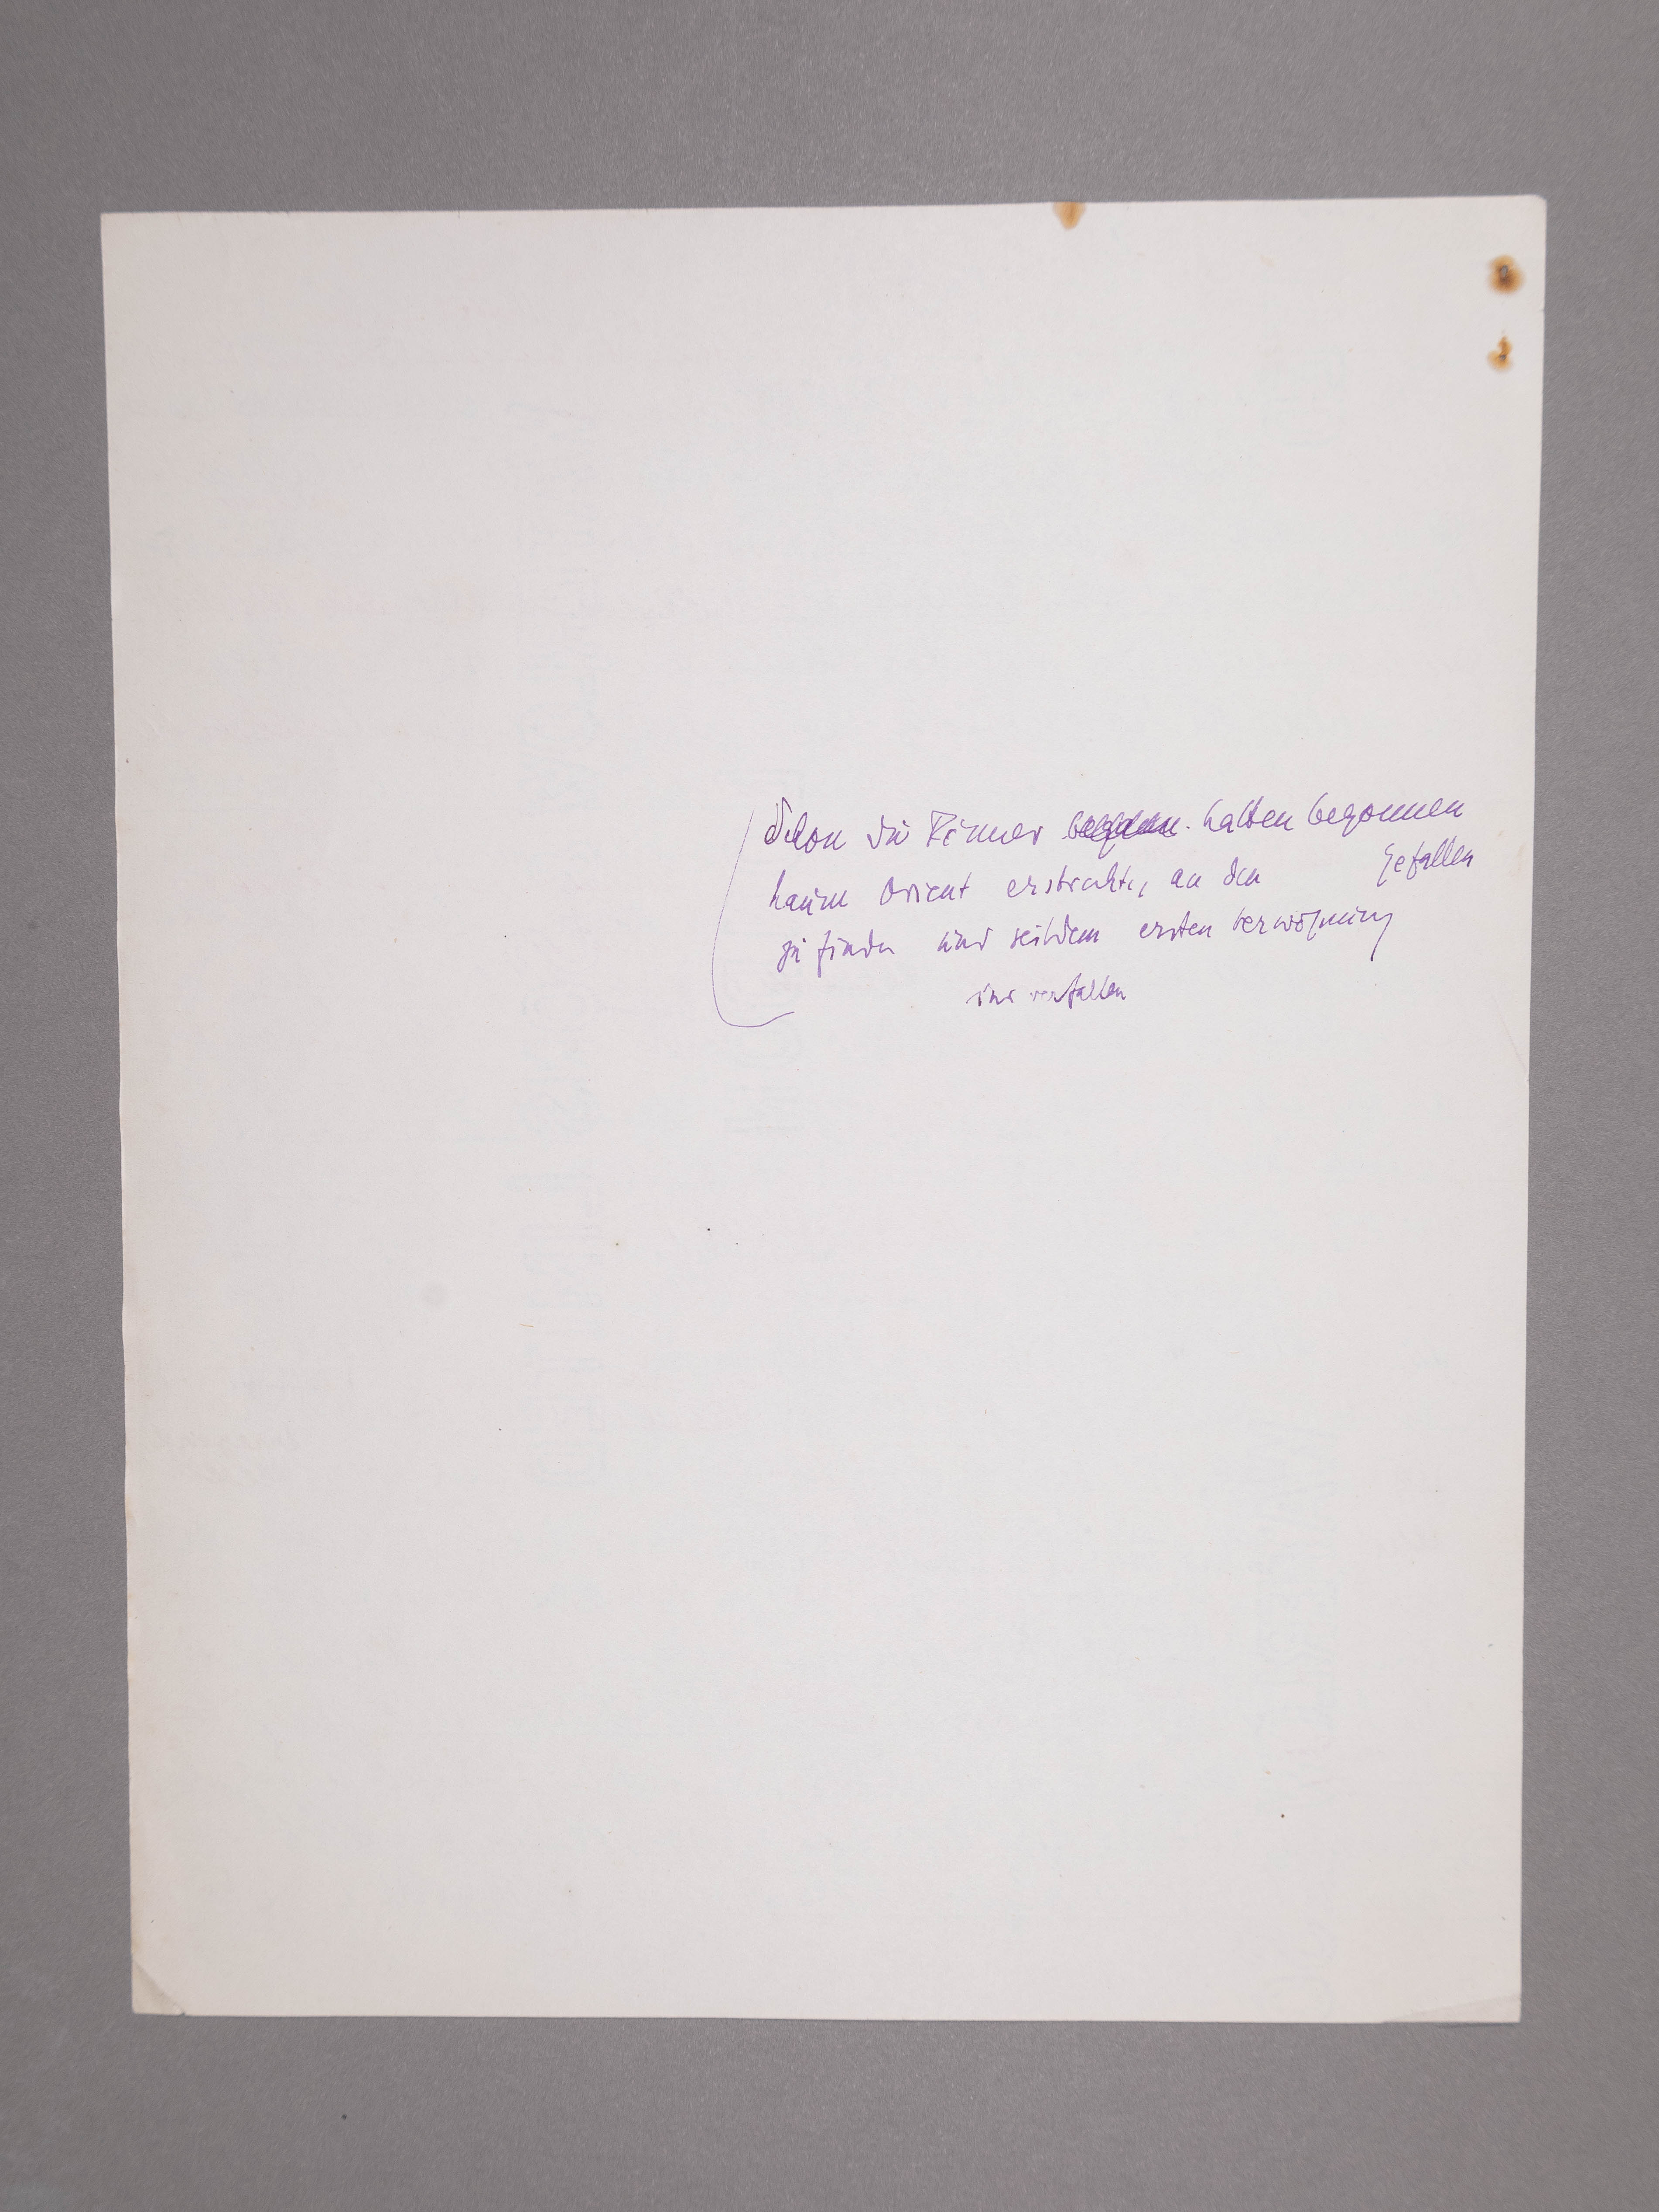 Schon die Römer hatten begonnen
kaum Orient erstrebte, an den Gefallen
zu finden und seitdem ersten
sind verfallen